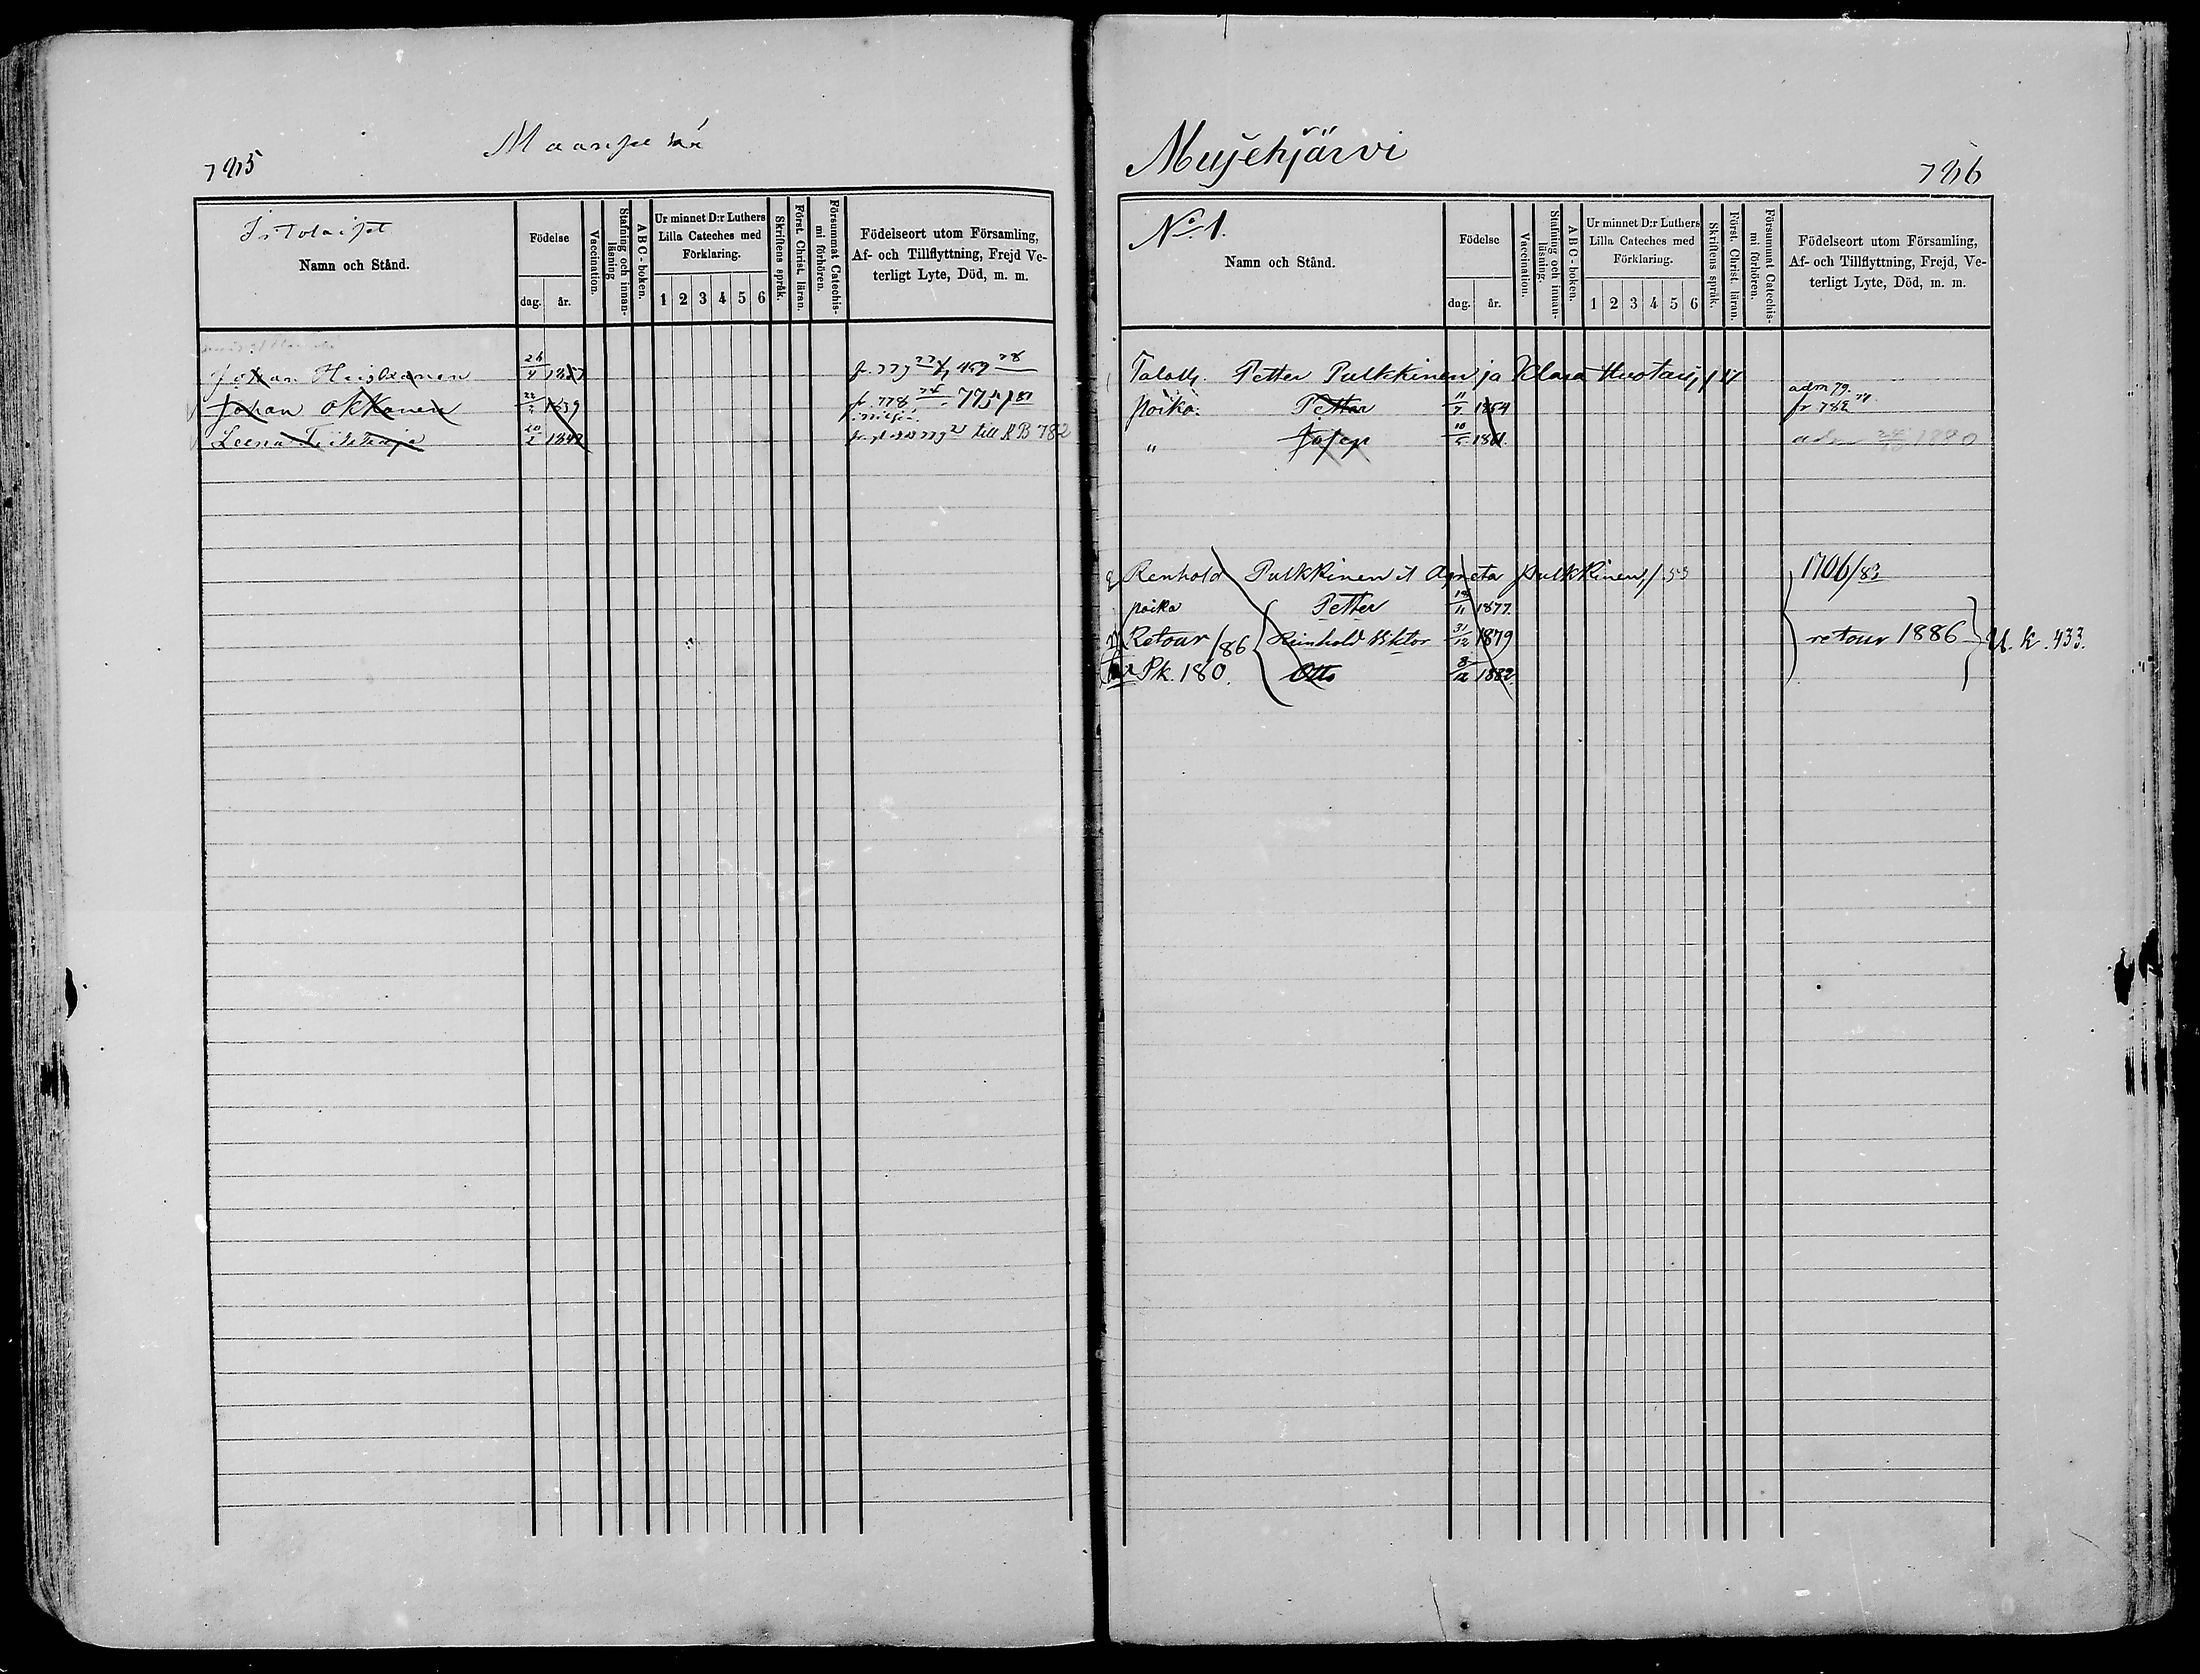 785
Istolaiset
Namn och Stånd.
Födelse
dag.
år.
Vaccination.
Stafning och innanläsning
A B C - boken.
Ur minnet D:r Luthers Lilla Cateches med Förklaring.
1 2 3 4 5 6
Skriftens språk.
Först. Christ. läran.
Försummat Catechismi förhören.
Födelseort utom Församling, Af- och Tillflyttning, Frejd Veterligt Lyte, Död, m. m.
Johan Heiskanen 26/4 1857
Johan Okkonen 22/2 1839 fr. 778
Leena 20/2 1842 till RB 782
Mujehjärvi
786
No 1.
Namn och Stånd.
Födelse
dag.
år.
Vaccination.
Stafning och innanläsning.
A B C - boken.
Ur minnet D:r Luthers Lilla Cateches med Förklaring.
1 2 3 4 5 6
Skriftens språk.
Först. Christ. läran.
Försummat Catechismi förhören.
Födelseort utom Församling, Af- och Tillflyttning, Frejd, Veterligt Lyte, Död, m. m.
Petter Pulkkinen ja Klara Huotari
poika. Petter 11/7 1854 adm 79. fr 782
" Josep 10/5 1861. adm 1880
Renhold Pulkkinen it Agneta Pulkkinen, /55 1706/83
poika Petter 18/11 1877.
Retour /86 Reinhold Viktor 31/12 1879 retour 1886 U. k. 433.
Pk. 180. Otto 8/12 1882.